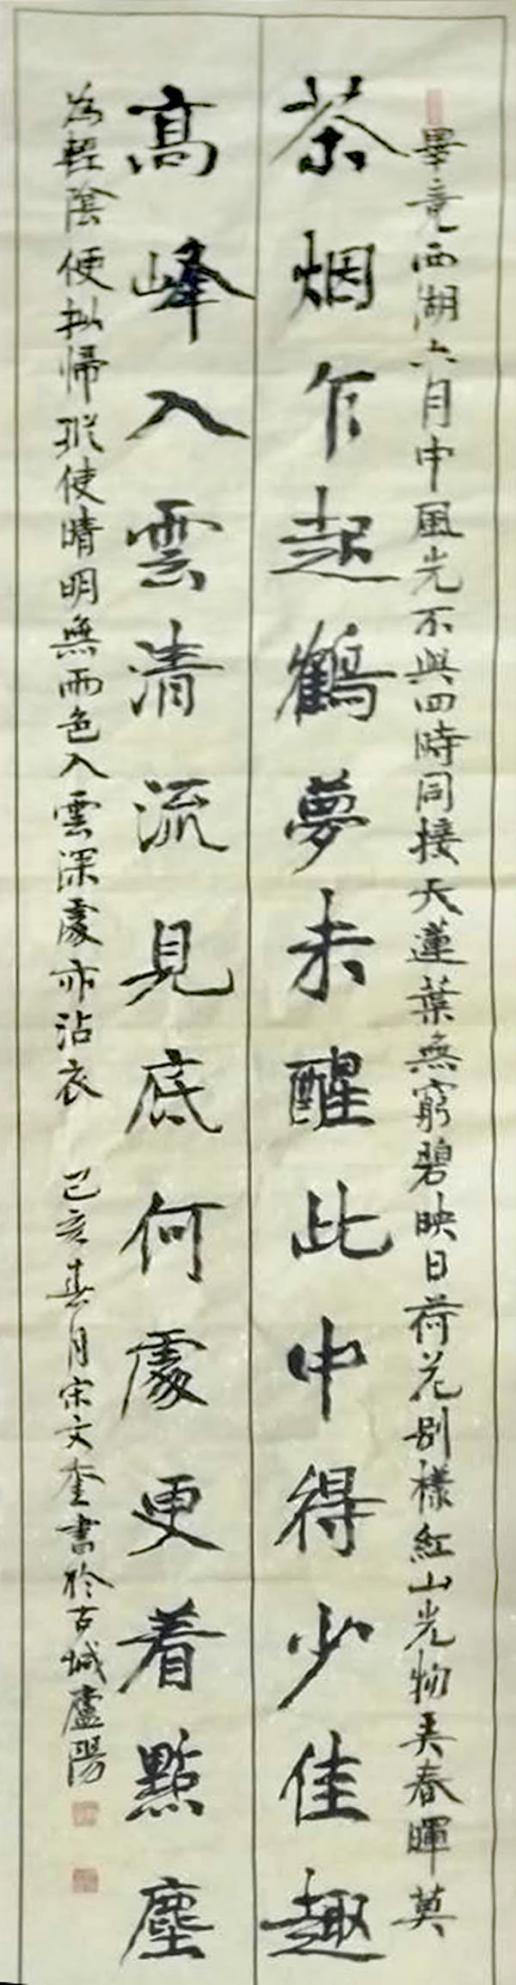 畢竟西湖六月中風光不與四時同接天蓮葉無窮碧映日荷花別樣紅山光物弄春暉莫
茶烟乍起鶴夢未醒此中得少佳趣
高峰入雲清流見底何處更着點塵
為輕陰便拟歸縱使晴明無雨色入雲深處亦沾衣 己亥春月宋文奎書於古城廬陽